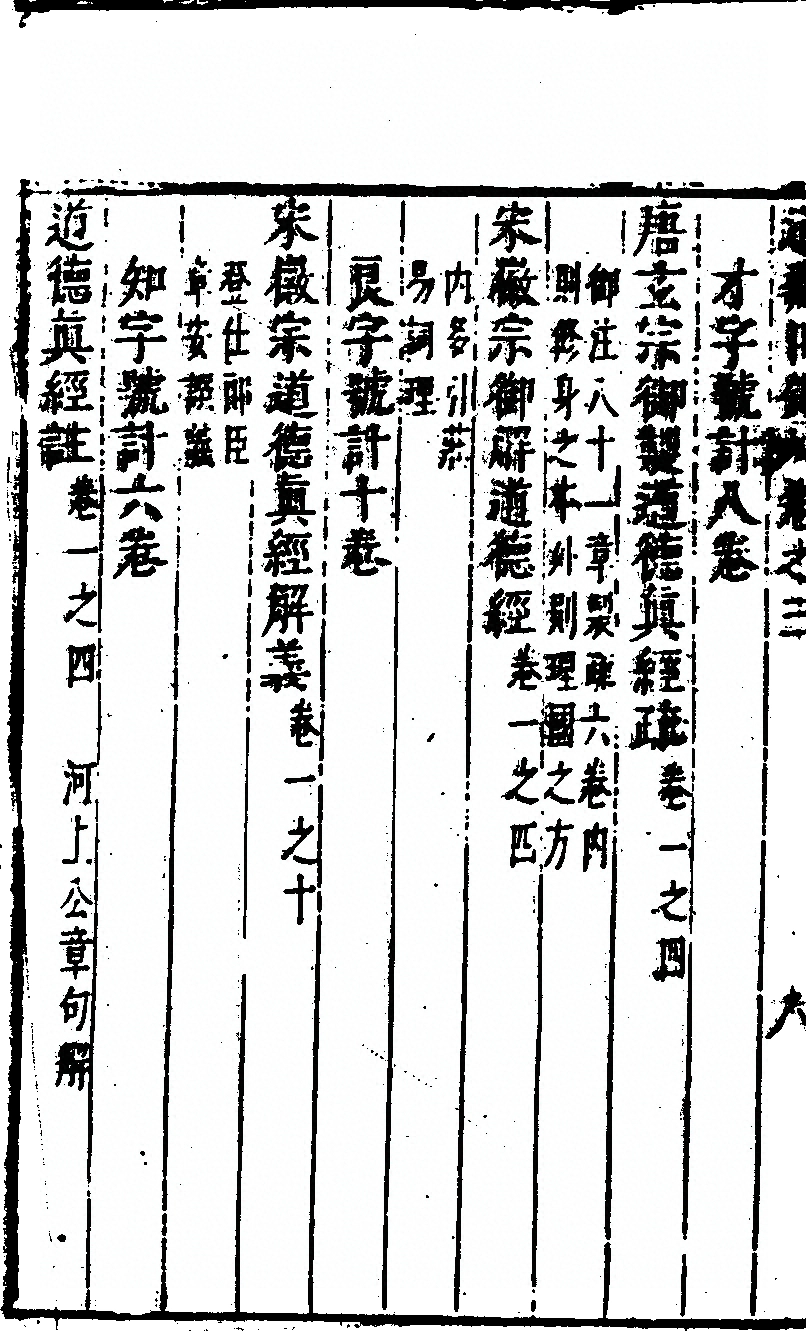 卷之三 六
才字號計八卷
唐玄宗御製道德眞經疏 卷一之四
御注八十一章製疏六卷內
則修身之本外則理國之方
宋徽宗御解道德經 卷一之四
內多引莊
易詞理
良字號計十卷
宋徽宗道德眞經解義 卷一之十
登仕郎臣
章安撰義
知字號計六卷
道德眞經註 卷一之四 河上公章句解